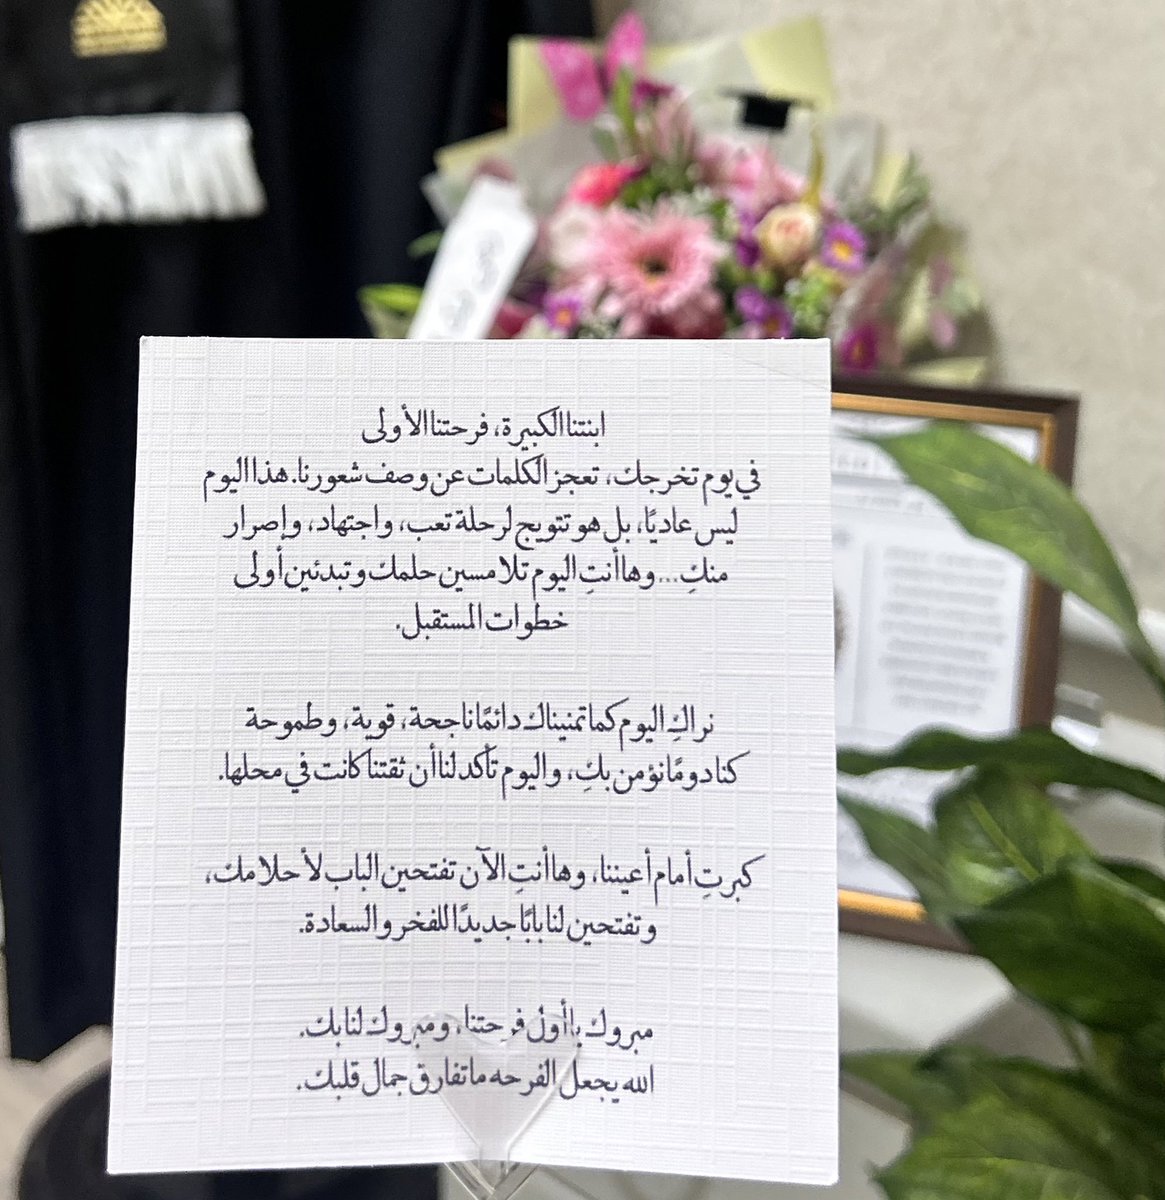 ابنتنا الكبيرة، فرحتنا الأولى
في يوم تخرجك، تعجز الكلمات عن وصف شعورنا. هذا اليوم
ليس عاديًا، بل هو تتويج لرحلة تعب، واجتهاد، وإصرار
منكِ... وها أنتِ اليوم تلامسين حلمك وتبدئين أولى
خطوات المستقبل.
نراكِ اليوم كما تمنيناك دائمًا ناجحة، قوية، وطموحة
كنا دومًا نؤمن بكِ، واليوم تأكد لنا أن ثقتنا كانت في محلها.
كبرتِ أمام أعيننا، وها أنتِ الآن تفتحين الباب لأحلامك،
وتفتحين لنا بابًا جديدًا للفخر والسعادة.
مبروك يا أول فرحتنا، ومبروك لنا بك.
الله يجعل الفرحه ما تفارق جمال قلبك.